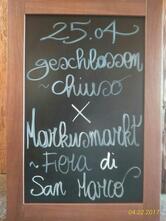 25.04
geschlossen
~ chiuso
x
Markusmarkt
~ Fiera di
San Marco
04.22.2017